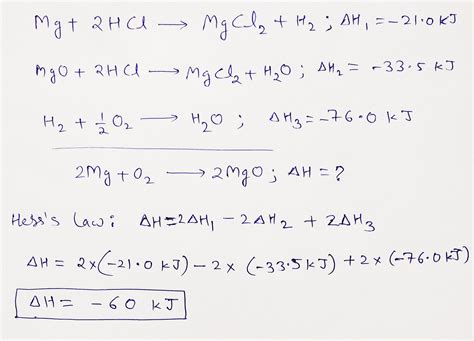 Mg + 2HCl → MgCl₂ + H₂ ; ΔH₁ = -21.0 kJ
MgO + 2HCl → MgCl₂ + H₂O ; ΔH₂ = -33.5 kJ
H₂ + ½ O₂ → H₂O ; ΔH₃ = -76.0 kJ
2Mg + O₂ → 2MgO ; ΔH = ?
Hess's Law: ΔH = 2ΔH₁ - 2ΔH₂ + 2ΔH₃
ΔH = 2×(-21.0 kJ) - 2× (-33.5kJ) + 2× (-76.0 kJ)
ΔH = -60 kJ